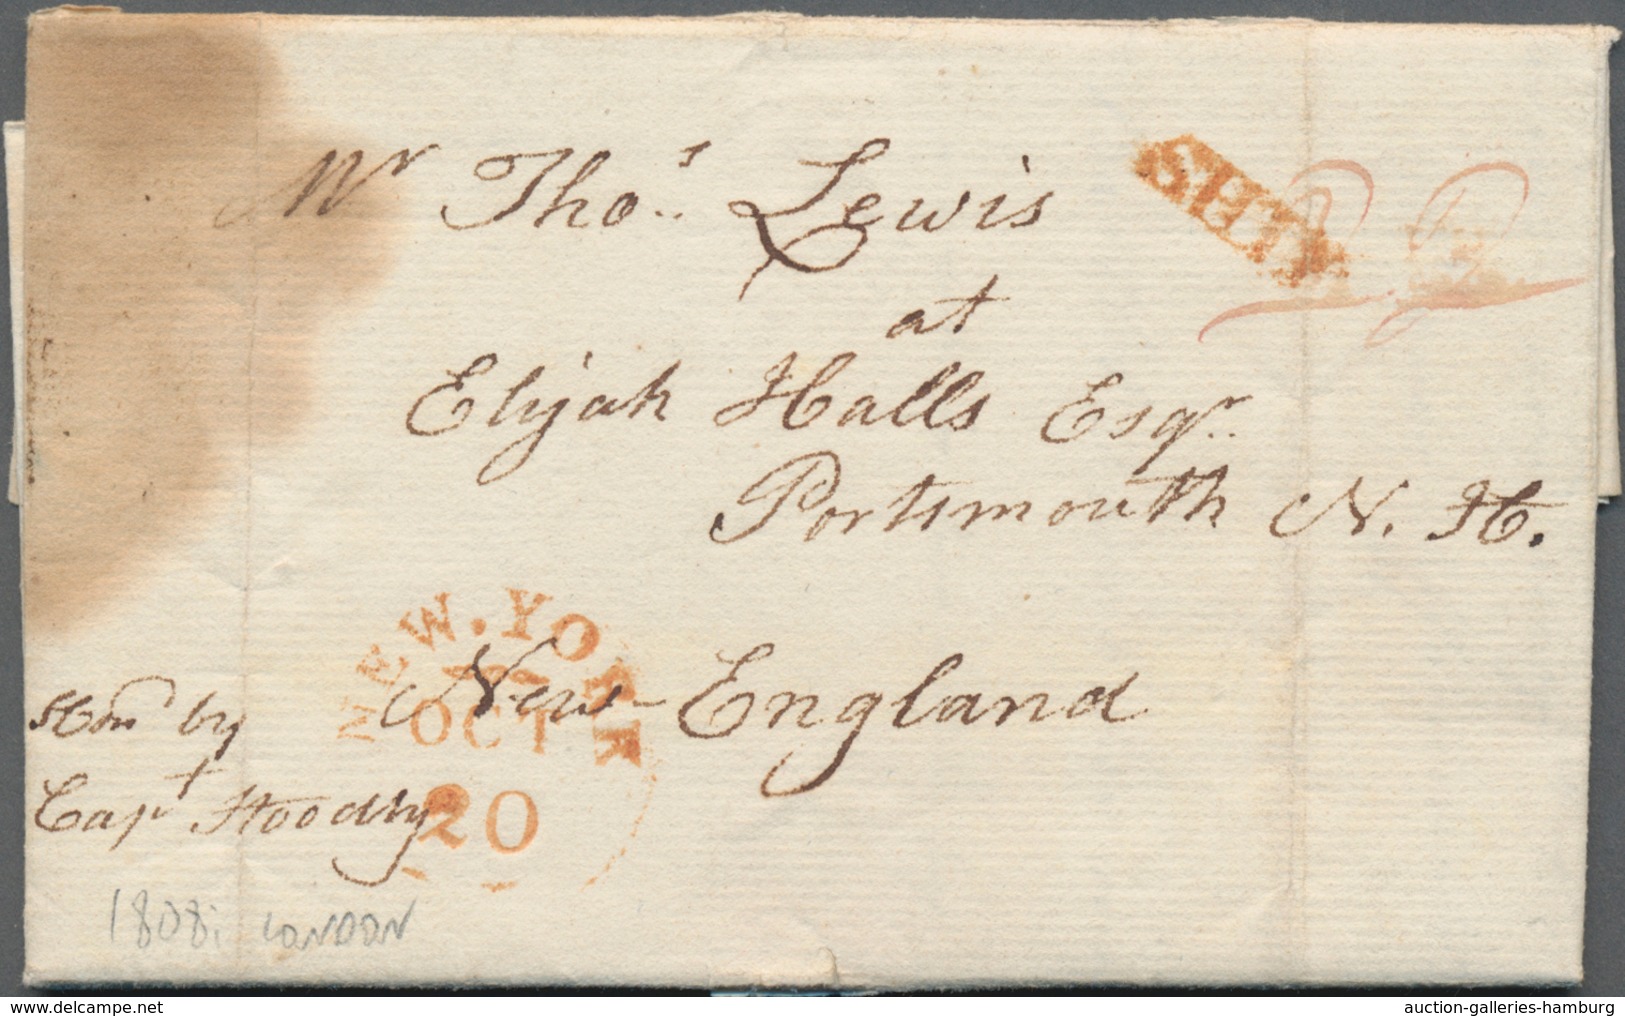 Mr Thos. Lewis
SHIP
at
Elijah Halls Esqr.
Portsmouth N. H.
NEW.YORK
OCT
20
New-England
Hond by
Capt Hoodly
1808; LONDON
www.delcampe.net
auction-galleries-hamburg